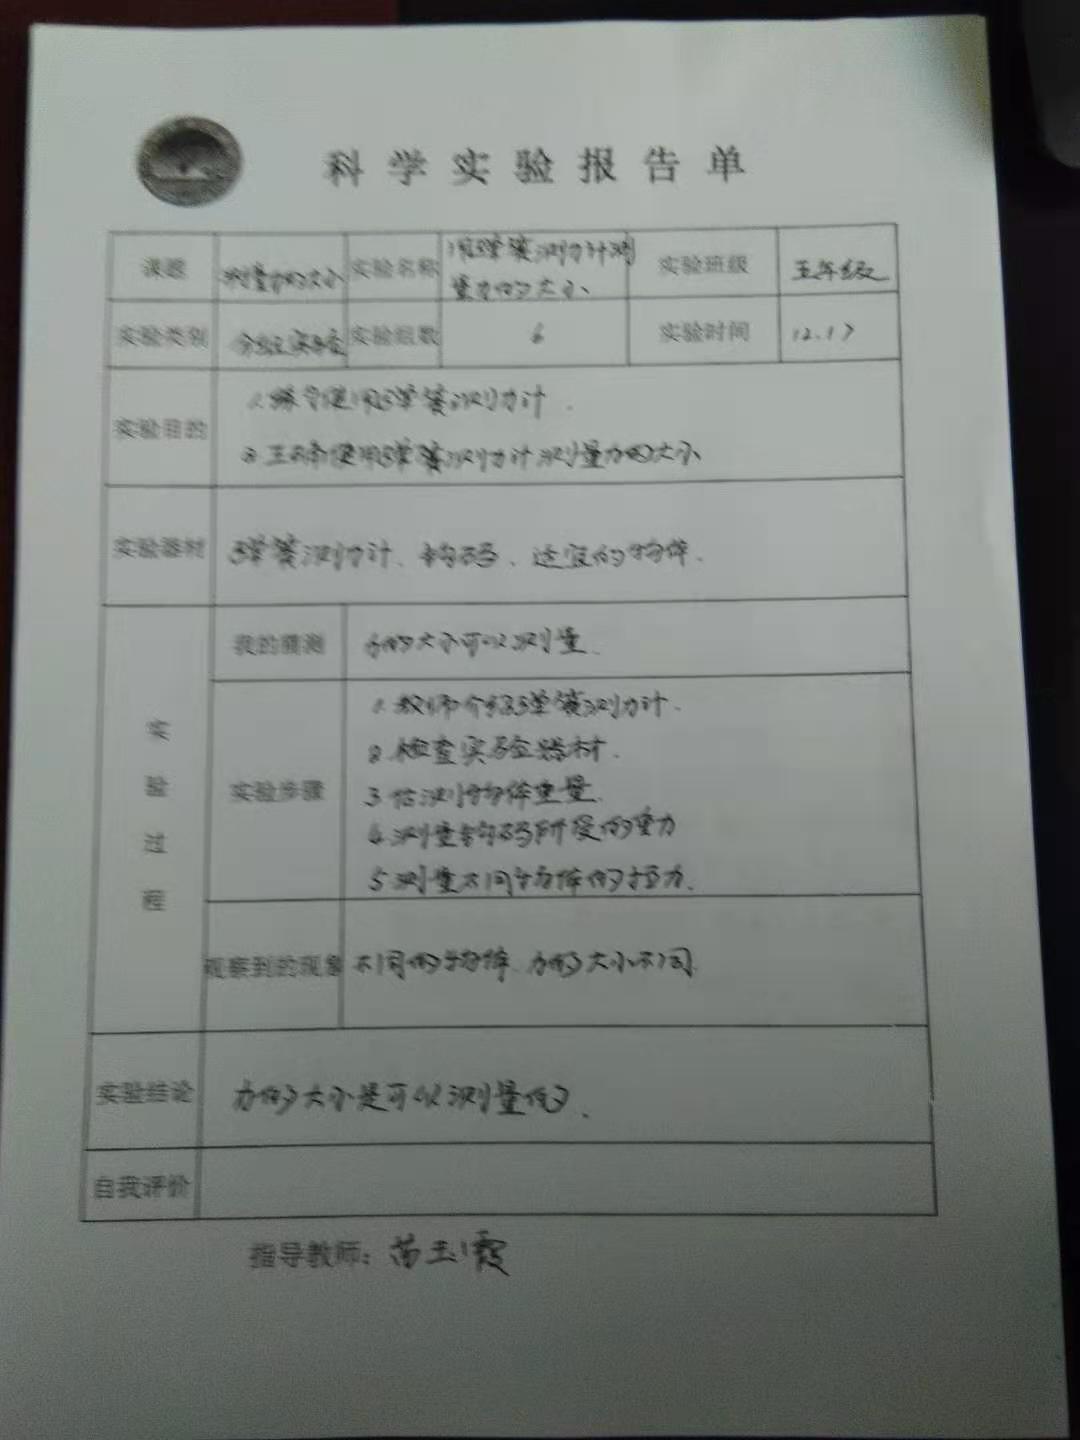 科学实验报告单
课题 测量力的大小 实验名称 用弹簧测力计测
量力的大小 实验班级 五年级
实验类别 分组实验 实验组数 6 实验时间 12.17
实验目的 1.练习使用弹簧测力计.
2.正确使用弹簧测力计测量力的大小
实验器材 弹簧测力计、钩码、适宜的物体.
实验过程
我的猜测 力的大小可以测量.
实验步骤 1.教师介绍弹簧测力计.
2.检查实验器材.
3.估测物体重量.
4.测量钩码所受的重力
5.测量不同物体的拉力.
观察到的现象 不同的物体、力的大小不同.
实验结论 力的大小是可以测量的.
自我评价
指导教师: 苗玉霞